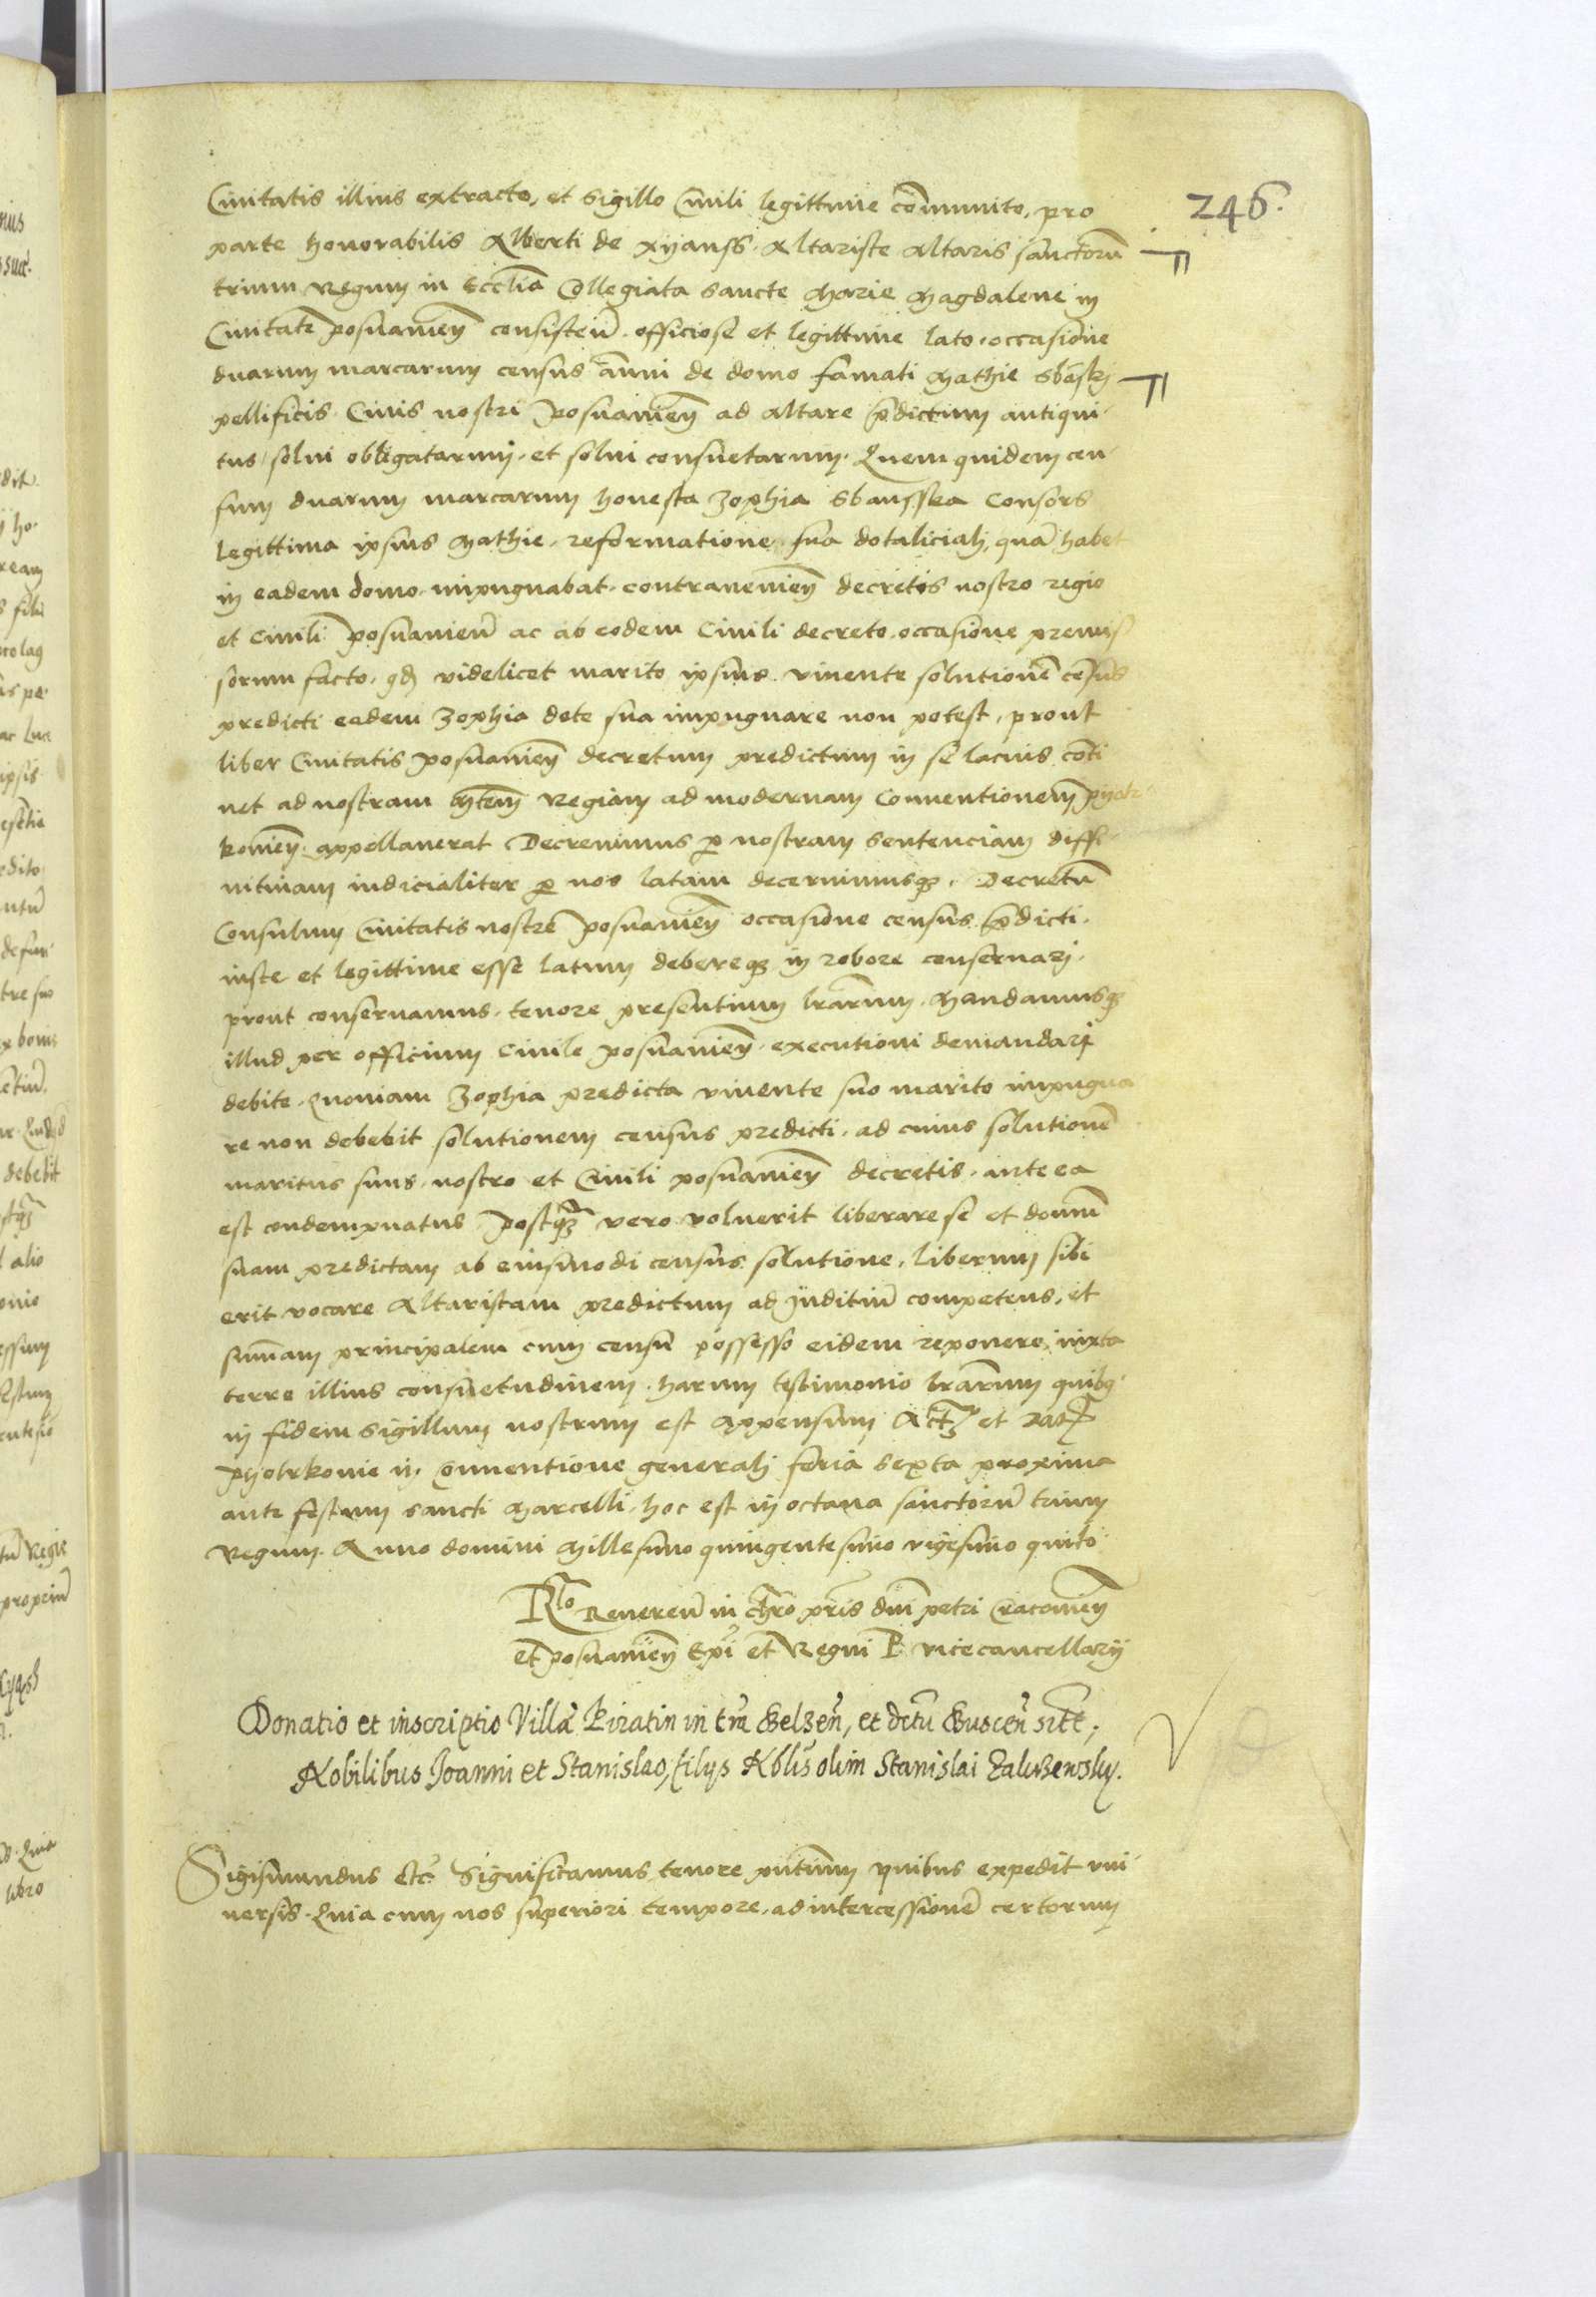 246.
Civitatis illius extracto, et sigillo Civili legittime communito, pro
parte honorabilis Alberti de Xyanss Altariste altaris sanctorũ
trium Regum in Eccl̃ia Collegiata sancte Marie Magdalene in
Civitate posnanieñ consisteñ officiose et legittime lato, occasione
duarum marcarum census añui de domo famati Mathie Sbãski
pellificis Civis nostri posnanieñ ad altare p̃dictum antiqui
tus solvi obligatarum, et solvi consuetarum. Quem quidem cen
sum duarum marcarum honesta Zophia Sbansska Consors
legittima ipsius Mathie, reformatione sua dotaliciali, quã habet
in eadem domo, impugnabat, contravenieñ decretis nostro regio
et Civili posnanieñ ac ab eodem Civili decreto occasione premis
sorum facto, qd̃ videlicet marito ipsius vivente solutionẽ cẽsus
predicti eadem Zophia dote sua impugnare non potest, prout
liber Civitatis posnanieñ decretum predictum in se lacius cõti
net ad nostram Mtem̃ Regiam ad modernam Conventionem pyotr
kovieñ appellaverat Decrevimus p nostram sentenciam diffi
nitivam iudicialiter p nos latam decernimusq3, Decretũ
Consulum Civitatis nostre posnanieñ occasione census p̃dicti,
iuste et legittime esse latum debereq3 in robore conservari,
prout conservamus, tenore presentium lr̃arum, Mandamusq3
illud per officium Civile posnanieñ executioni demandari
debite. Quoniam Zophia predicta vivente suo marito impugna
re non debebit solutionem census predicti, ad cuius solutionẽ
maritus suus, nostro et Civili posnanieñ decretis, antea
est condempnatus postq̃3 vero voluerit liberare se et domũ
suam predictam ab eiusmodi census solutione, liberum sibi
erit vocare Altaristam predictum ad Juditiũ competens, et
sum̃am principalem cum censu possesso eidem reponere, iuxta
terre illius consuetudinem. harum testimonio lr̃arum quibq
in fidem sigillum nostrum est appensum Act3 et Dat̃
pyotrkovie in Conventione generali feria sexta proxima
ante festum sancti Marcelli, hoc est in octava sanctorũ trium
Regum. Anno domini Millesimo quingentesimo vigesimo quĩto
Rlo Revereñ in chr̃o pris̃ dñi petri Cracovieñ
et posnanieñ Ep̃i et Regni P vicecancellarij
Donatio et inscriptio Villæ Piratin in tr̃a Belzeñ, et dctũ Buscen̄ sitæ;
Nobilibus Joanni et Stanislao, filys Nb̃lis olim Stanislai Zaluzensky.
Sigismundus etc̃ Significamus tenore pñtium quibus expedit uni
versis. Quia cum nos superiori tempore, ad intercessionẽ certorum